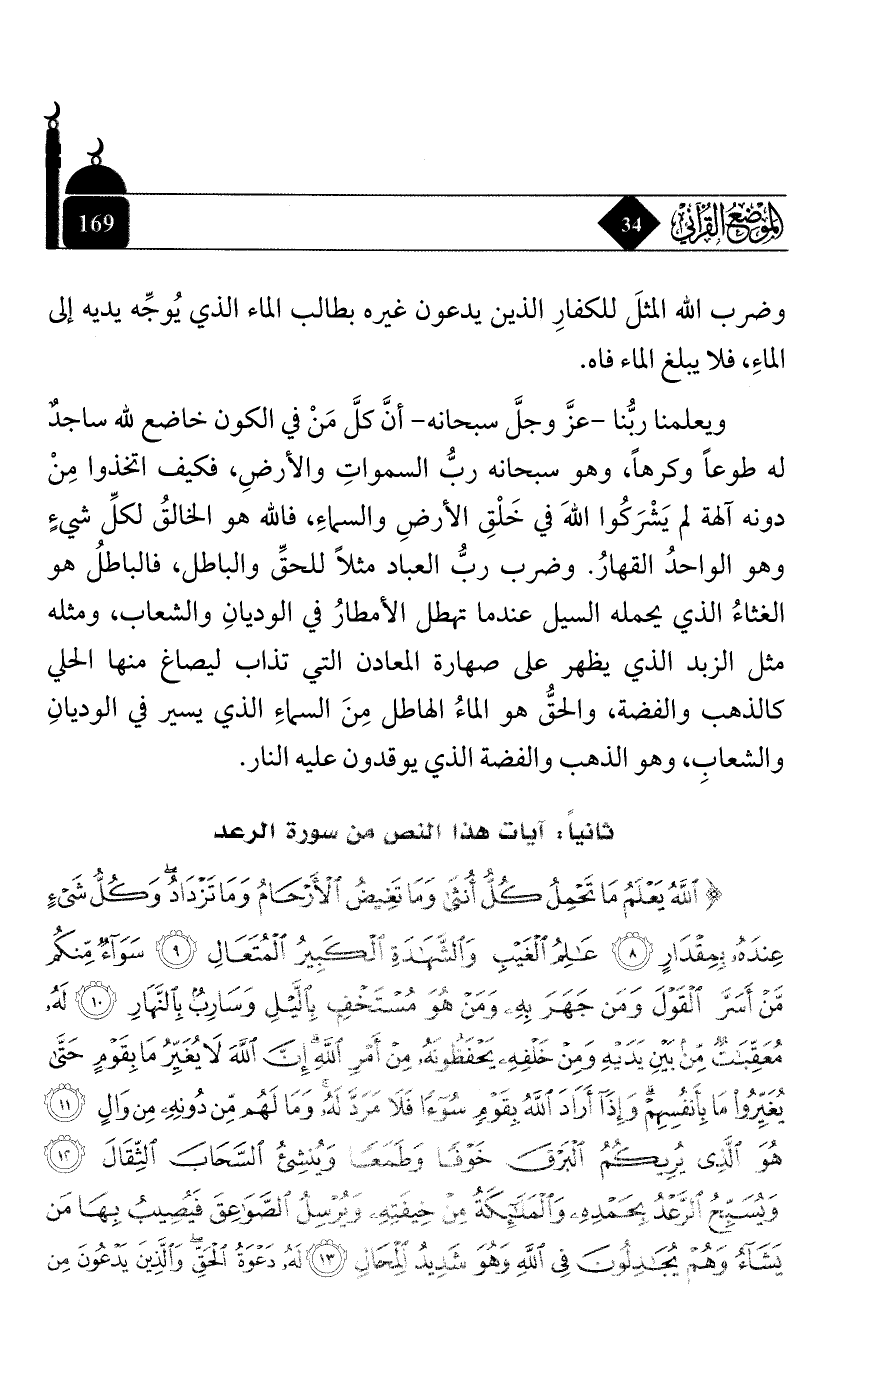 الموضع القرآني 34 169
وضرب الله المثلَ للكفارِ الذين يدعون غيره بطالب الماء الذي يُوجِّه يديه إلى
الماءِ، فلا يبلغ الماء فاه.
ويعلمنا ربُّنا -عزَّ وجلَّ سبحانه- أنَّ كلَّ مَنْ في الكون خاضع لله ساجدٌ
له طوعاً وكرهاً، وهو سبحانه ربُّ السمواتِ والأرضِ، فكيف اتخذوا مِنْ
دونه آلهة لم يَشْرَكُوا اللهَ في خَلْقِ الأرضِ والسماءِ، فالله هو الخالقُ لكلِّ شيءٍ
وهو الواحدُ القهارُ. وضرب ربُّ العباد مثلاً للحقِّ والباطل، فالباطلُ هو
الغثاءُ الذي يحمله السيل عندما تهطل الأمطارُ في الوديانِ والشعاب، ومثله
مثل الزبد الذي يظهر على صهارة المعادن التي تذاب ليصاغ منها الحلي
كالذهب والفضة، والحقُّ هو الماءُ الهاطل مِنَ السماءِ الذي يسير في الوديانِ
والشعابِ، وهو الذهب والفضة الذي يوقدون عليه النار.
ثانياً: آيات هذا النص من سورة الرعد
﴿ ٱللَّهُ يَعۡلَمُ مَا تَحۡمِلُ كُلُّ أُنثَىٰ وَمَا تَغِيضُ ٱلۡأَرۡحَامُ وَمَا تَزۡدَادُۖ وَكُلُّ شَيۡءٍ
عِندَهُۥ بِمِقۡدَارٍ ٨ عَٰلِمُ ٱلۡغَيۡبِ وَٱلشَّهَٰدَةِ ٱلۡكَبِيرُ ٱلۡمُتَعَالِ ٩ سَوَآءٞ مِّنكُم
مَّنۡ أَسَرَّ ٱلۡقَوۡلَ وَمَن جَهَرَ بِهِۦ وَمَنۡ هُوَ مُسۡتَخۡفِۭ بِٱلَّيۡلِ وَسَارِبُۢ بِٱلنَّهَارِ ١٠ لَهُۥ
مُعَقِّبَٰتٞ مِّنۢ بَيۡنِ يَدَيۡهِ وَمِنۡ خَلۡفِهِۦ يَحۡفَظُونَهُۥ مِنۡ أَمۡرِ ٱللَّهِۗ إِنَّ ٱللَّهَ لَا يُغَيِّرُ مَا بِقَوۡمٍ حَتَّىٰ
يُغَيِّرُواْ مَا بِأَنفُسِهِمۡۗ وَإِذَآ أَرَادَ ٱللَّهُ بِقَوۡمٖ سُوٓءٗا فَلَا مَرَدَّ لَهُۥۚ وَمَا لَهُم مِّن دُونِهِۦ مِن وَالٍ ١١
هُوَ ٱلَّذِي يُرِيكُمُ ٱلۡبَرۡقَ خَوۡفٗا وَطَمَعٗا وَيُنشِئُ ٱلسَّحَابَ ٱلثِّقَالَ ١٢
وَيُسَبِّحُ ٱلرَّعۡدُ بِحَمۡدِهِۦ وَٱلۡمَلَٰٓئِكَةُ مِنۡ خِيفَتِهِۦ وَيُرۡسِلُ ٱلصَّوَٰعِقَ فَيُصِيبُ بِهَا مَن
يَشَآءُ وَهُمۡ يُجَٰدِلُونَ فِي ٱللَّهِ وَهُوَ شَدِيدُ ٱلۡمِحَالِ ١٣ لَهُۥ دَعۡوَةُ ٱلۡحَقِّۖ وَٱلَّذِينَ يَدۡعُونَ مِن